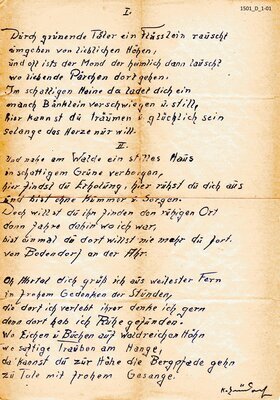 1501_D_1-01
I.
Dürch grünende Täler ein Flüsslein raüscht
ümgeben von lieblichen Höhen,
ünd oft ists der Mond der heimlich dann laüscht
wo liebende Pärchen dort gehen.
Im schattigen Haine da ladet dich ein
manch Bänklein verschwiegen ü. stille,
hier kannst dü traümen ü glücklich sein
solange das Herze nür will.
II.
Und nahe am Walde ein stilles Haüs
in schattigem Grüne verborgen,
hier findst dü Erholüng, hier rühst dü dich aüs
ünd bist ohne Kümmer ü. Sorgen.
Doch willst dü ihn finden den rühigen Ort
dann fahre dahin wo ich war,
bist einmal dü dort willst nie mehr dü fort.
von Bodendorf an der Ahr.
Oh Ahrtal dich grüß ich aüs weitester Fern
in frohem Gedenken der Stünden,
die dort ich verlebt ihrer denke ich gern
denn dort hab ich Rühe gefünden.
Wo Eichen ü Büchen aüf waldreichen Höhn
wo saftige Traüben am Hange,
da kannst dü zür Höhe die Bergpfade gehn
zü Tale mit frohem Gesange.